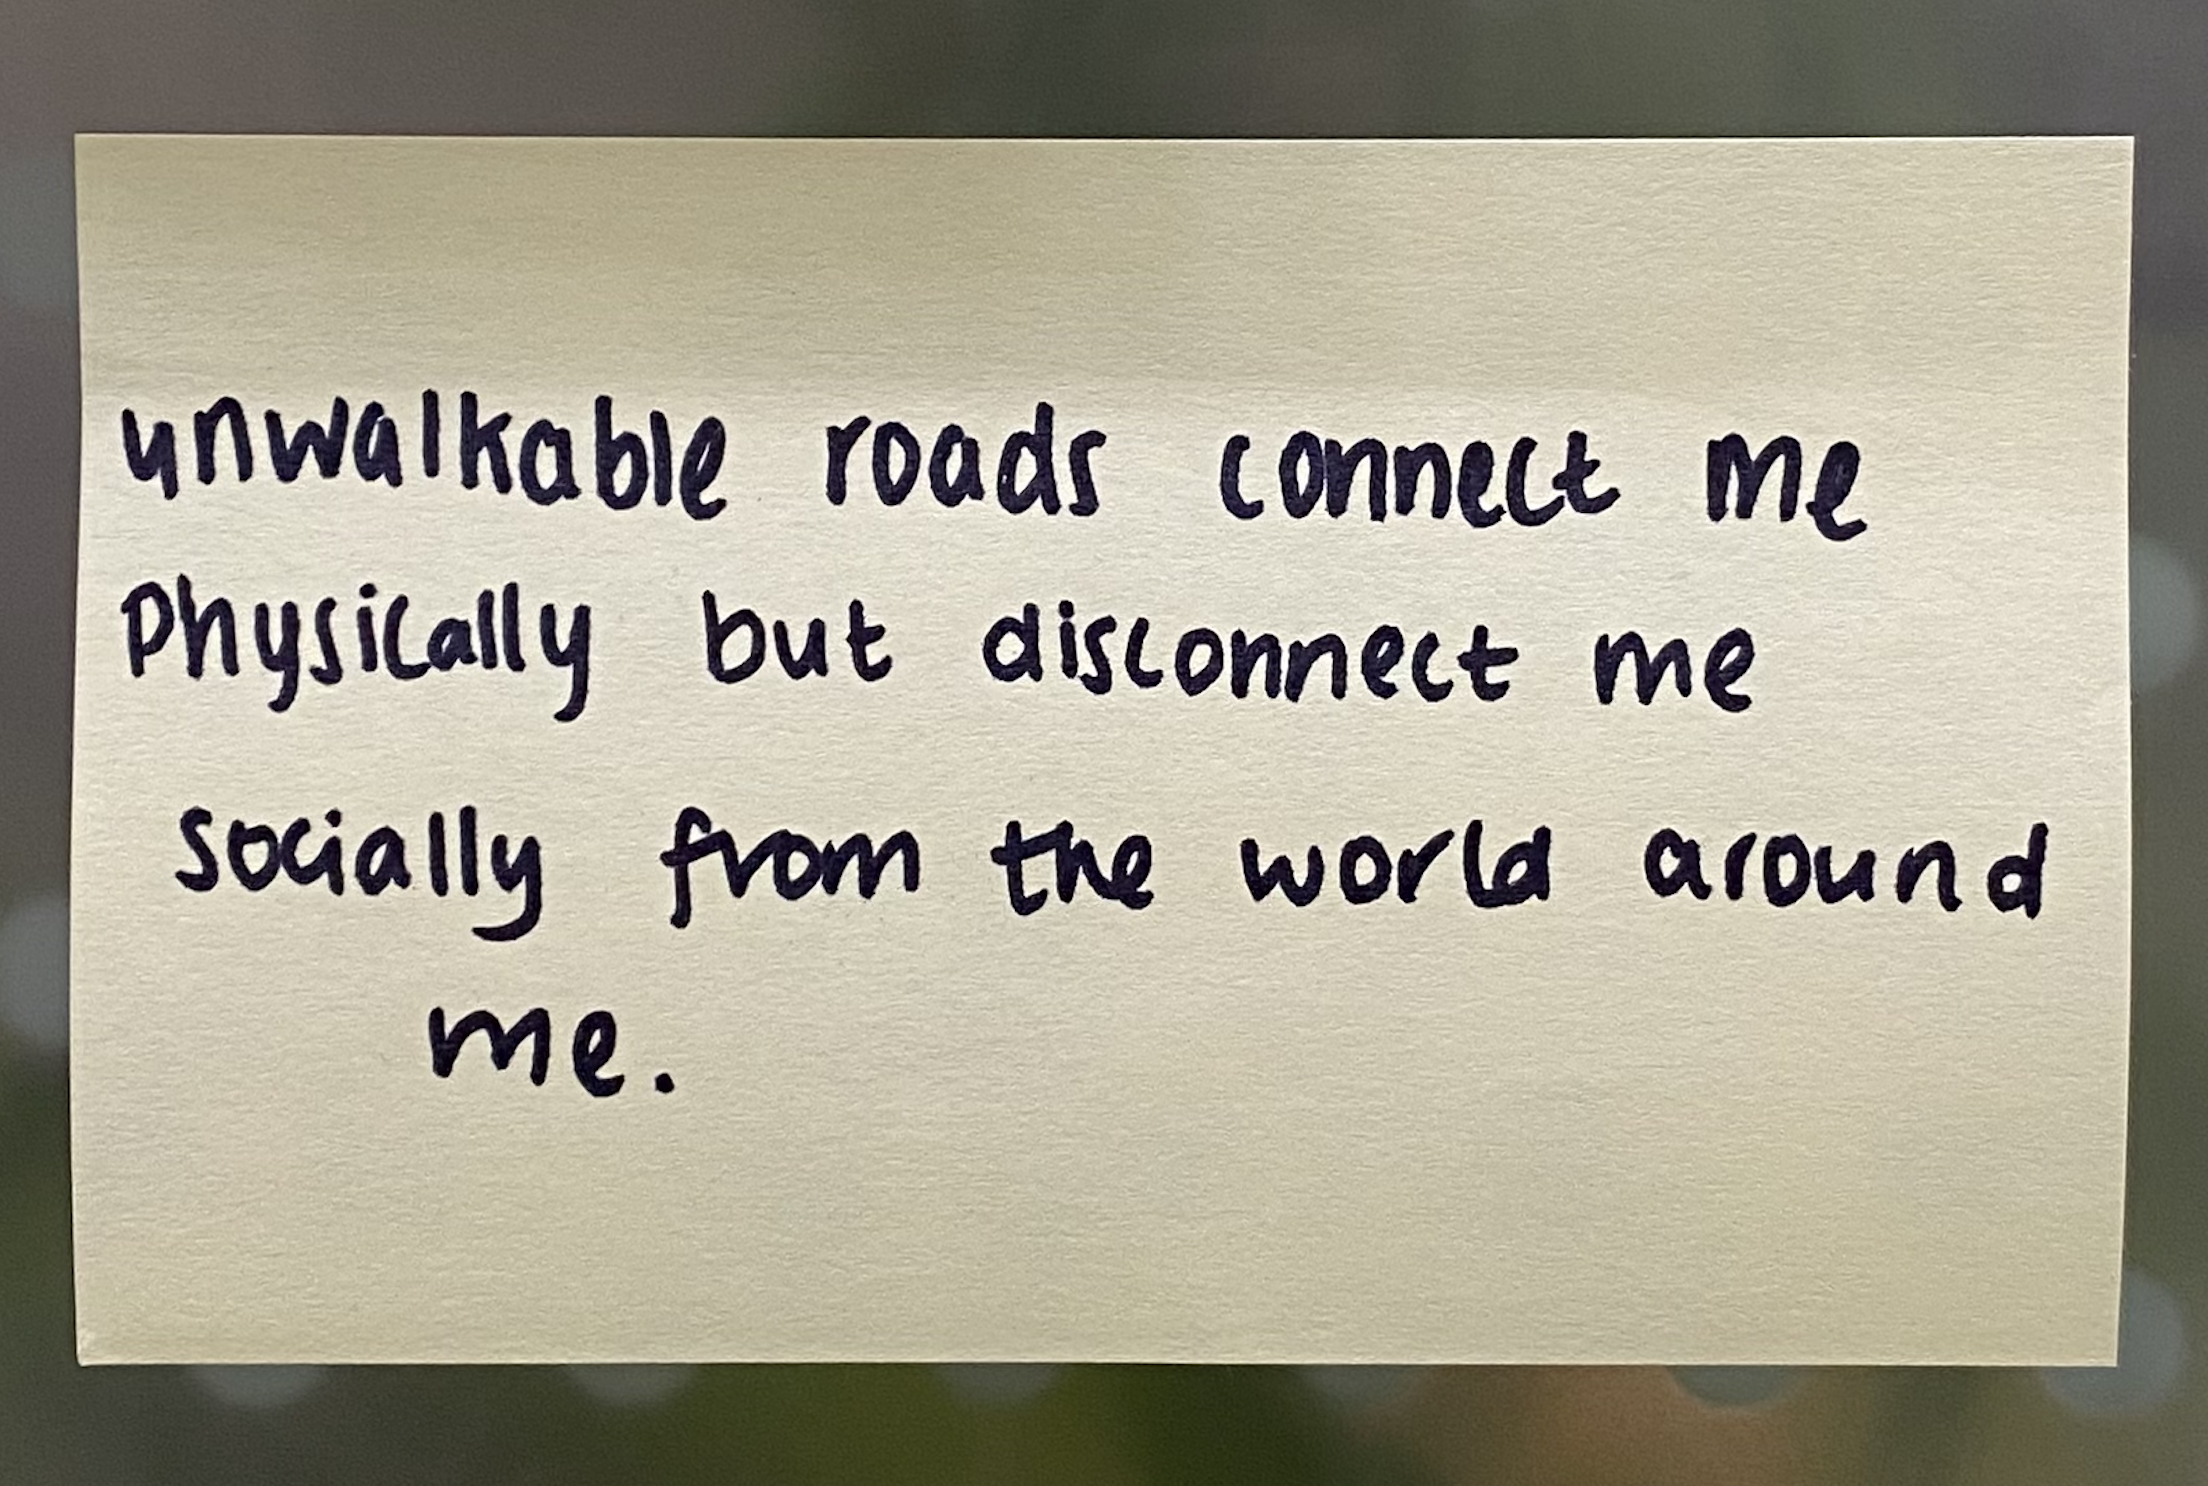 unwalkable roads connect me
Physically but disconnect me
socially from the world around
me.